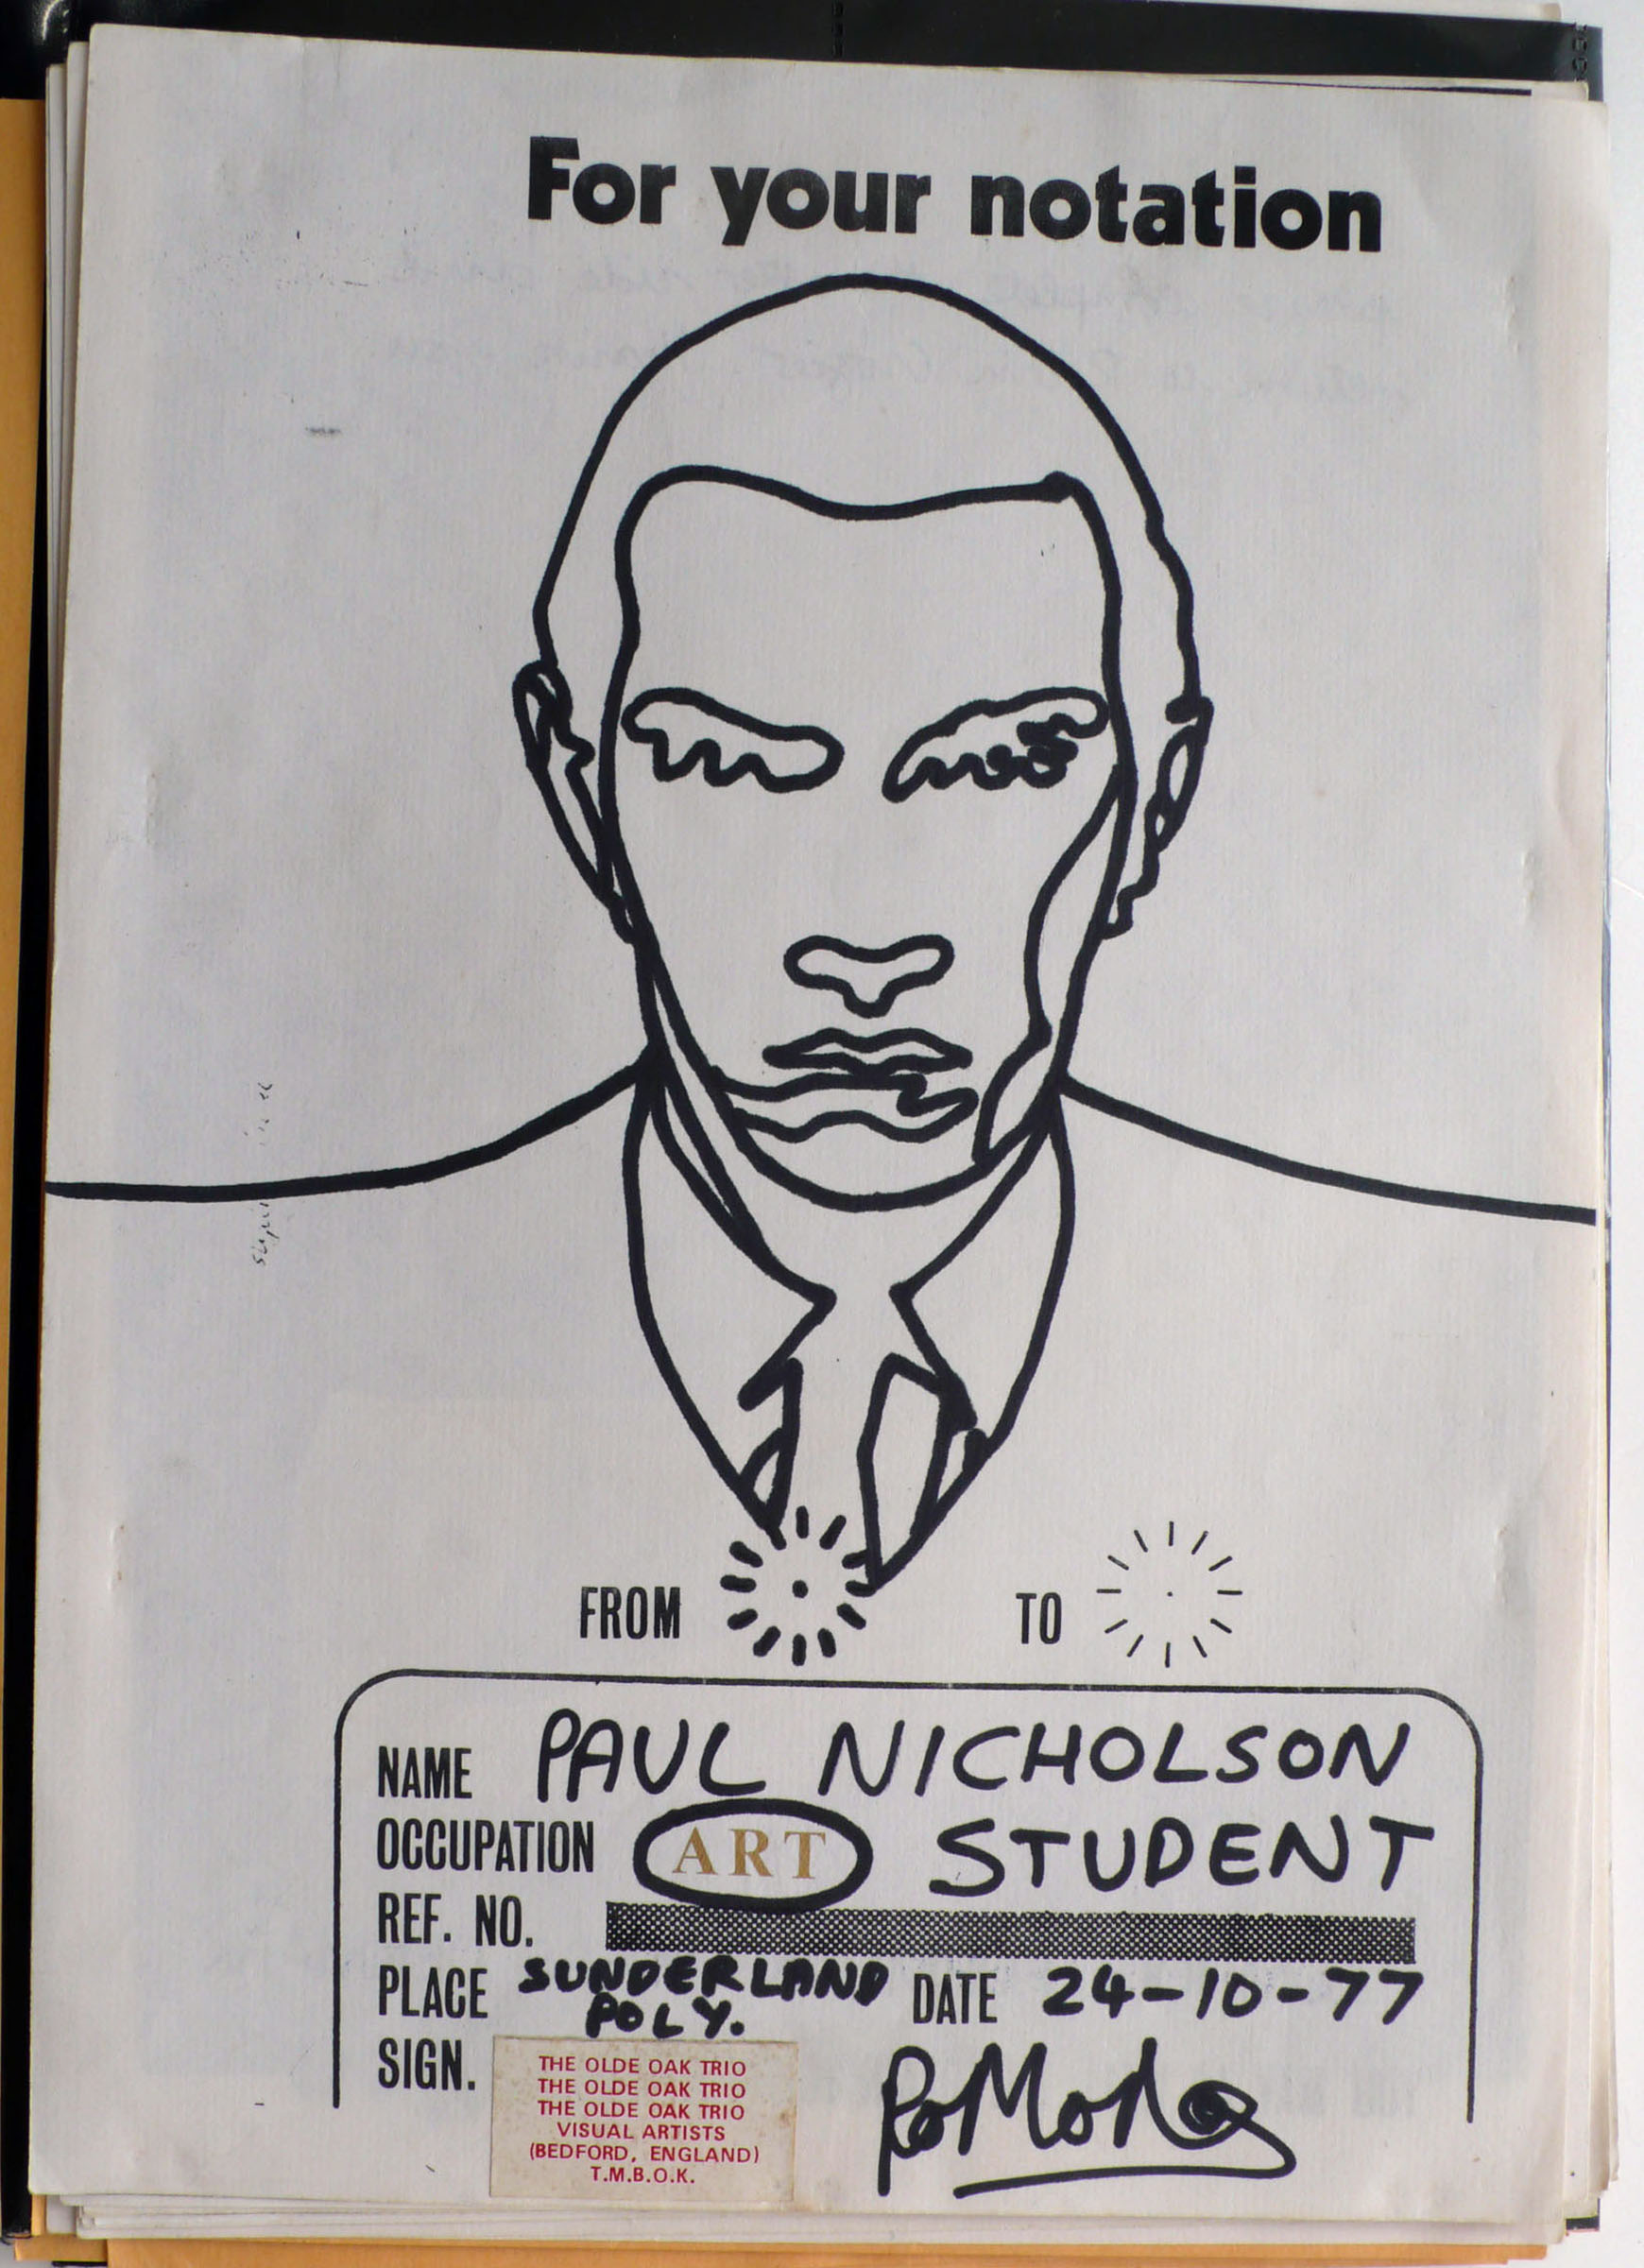 For your notation
FROM TO
NAME PAUL NICHOLSON
OCCUPATION ART STUDENT
REF. NO.
PLACE SUNDERLAND POLY. DATE 24-10-77
SIGN.
THE OLDE OAK TRIO
THE OLDE OAK TRIO
THE OLDE OAK TRIO
VISUAL ARTISTS
(BEDFORD, ENGLAND)
T.M.B.O.K.